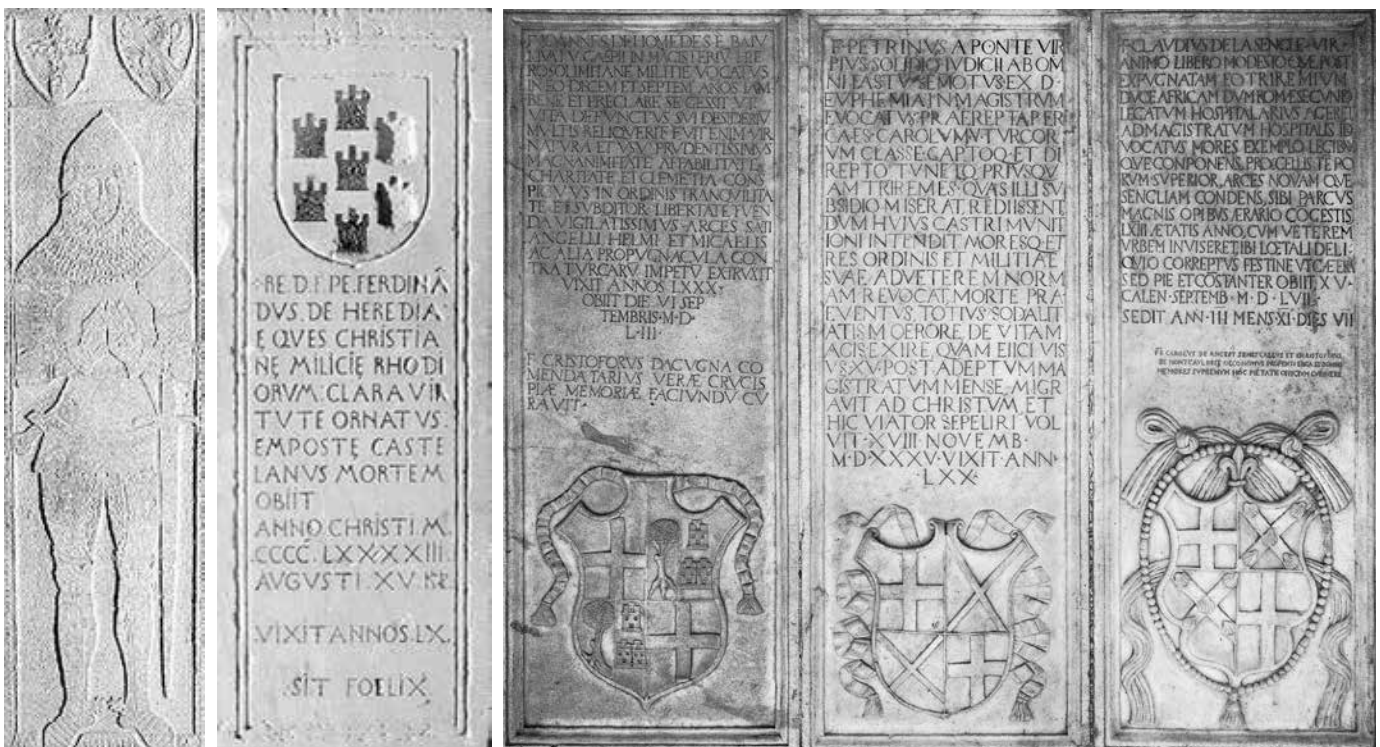 ·RE·D·F·PE·FERDINĀ
DVS·DE HEREDIA·
EQVES CHRISTIA
NĘ MILICIĘ RHODI
ORVM·CLARA VIR
TVTE ORNATVS·
EMPOSTĘ CASTE
LANVS MORTEM
OBIIT
ANNO·CHRISTI·M·
CCCC·LXXXXIII
AVGVSTI·XV·
VIXIT ANNOS·LX·
·SIT FOELIX
F·IOANNES DEHOMEDES E BAIV
LIVATV CASPII IN MAGISTERIV HIE
ROSOLIMITANE MILITIE VOCATVS
IN EO DICEM ET SEPTEM ANOS TAM
BENE ET PRECLARE SE GESSIT VT
VITA DEFVNCTVS SVI DESIDERIV
MVLTIS RELIQVERIT FVIT ENIM VIR
NATVRA ET VSV PRVDENTISSIMVS
MAGNANIMITATE AFFABILITATE
CHARITATE ET CLEMETIA CONS
PICVVS IN ORDINIS TRANQVILITA
TE ET SVBDITOR LIBERTATE TVEN
DA VIGILATISSIMVS ARCES SATI
ANGELLI HELMI ET MICAELIS
AC ALIA PROPVGNACVLA CON
TRA TVRCARV IMPETV EXTRVXIT
VIXIT ANNOS LXXX·
OBIIT DIE VI SEP
TEMBRIS·M·D·
L·III·
F CRISTOFORVS DACVGNA CO
MENDATARIVS VERÆ CRVCIS
PIÆ MEMORIÆ FACIVNDV CV
RAVIT·
F·PETRINVS A PONTE VIR
PIVS SOLIDIQ IVDICII AB OM
NI FASTV SEMOTVS·EX D·
EVPHEMIA IN MAGISTRVM
EVOCATVS·PRAEREPTA PER
CAES·CAROLVM·V·TVRCOR
VM CLASSE·CAPTOQ·ET DI
REPTO TVNETO·PRIVSQV
AM TRIREMES·QVAS ILLI SV
BSIDIO MISERAT·REDIISSENT·
DVM HVIVS CASTRI MVNIT
IONI INTENDIT MORESQ·ET
RES ORDINIS ET MILITIAE
SVAE AD VETEREM NORM
AM REVOCAT·MORTE PRA
EVENTVS·TOTIVS SODALIT
ATIS MOERORE·DE VITAM
AGIS EXIRE·QVAM EIICI VIS
VS·XV·POST ADEPTVM MA
GISTRATVM MENSE·MIGR
AVIT AD CHRISTVM·ET
HIC VIATOR SEPELIRI VOL
VIT·XVIII·NOVEMB·
M·D·XXXV·VIXIT·ANN·
LXX·
F·CLAVDIVS DE LA SENGLE·VIR·
ANIMO LIBERO MODESTOQVE POST
EXPVGNATAM EO TRIREMIVM
DVCE AFRICAM DVM ROME SECVND
LEGATVM HOSPITALARIVS AGERET
AD MAGISTRATVM HOSPITALIS ID
VOCATVS MORES EXEMPLO LECIBV
QVE CONPONENS, PROCELLIS TEPO
RVM SVPERIOR, ARCES NOVAM QVE
SENGLIAM CONDENS, SIBI PARCVS
MAGNIS OPIBVS ÆRARIO COGESTIS
LXIII ÆTATIS ANNO, CVM VETEREM
VRBEM INVISERET, IBI LŒTALI DELI
QVIO CORREPTVS FESTINE
SED PIE ET COSTANTER OBIIT, XV·
CALEN·SEPTEMB·M·D·LVII·
SEDIT ANN·III MENS·XI·DIES VII